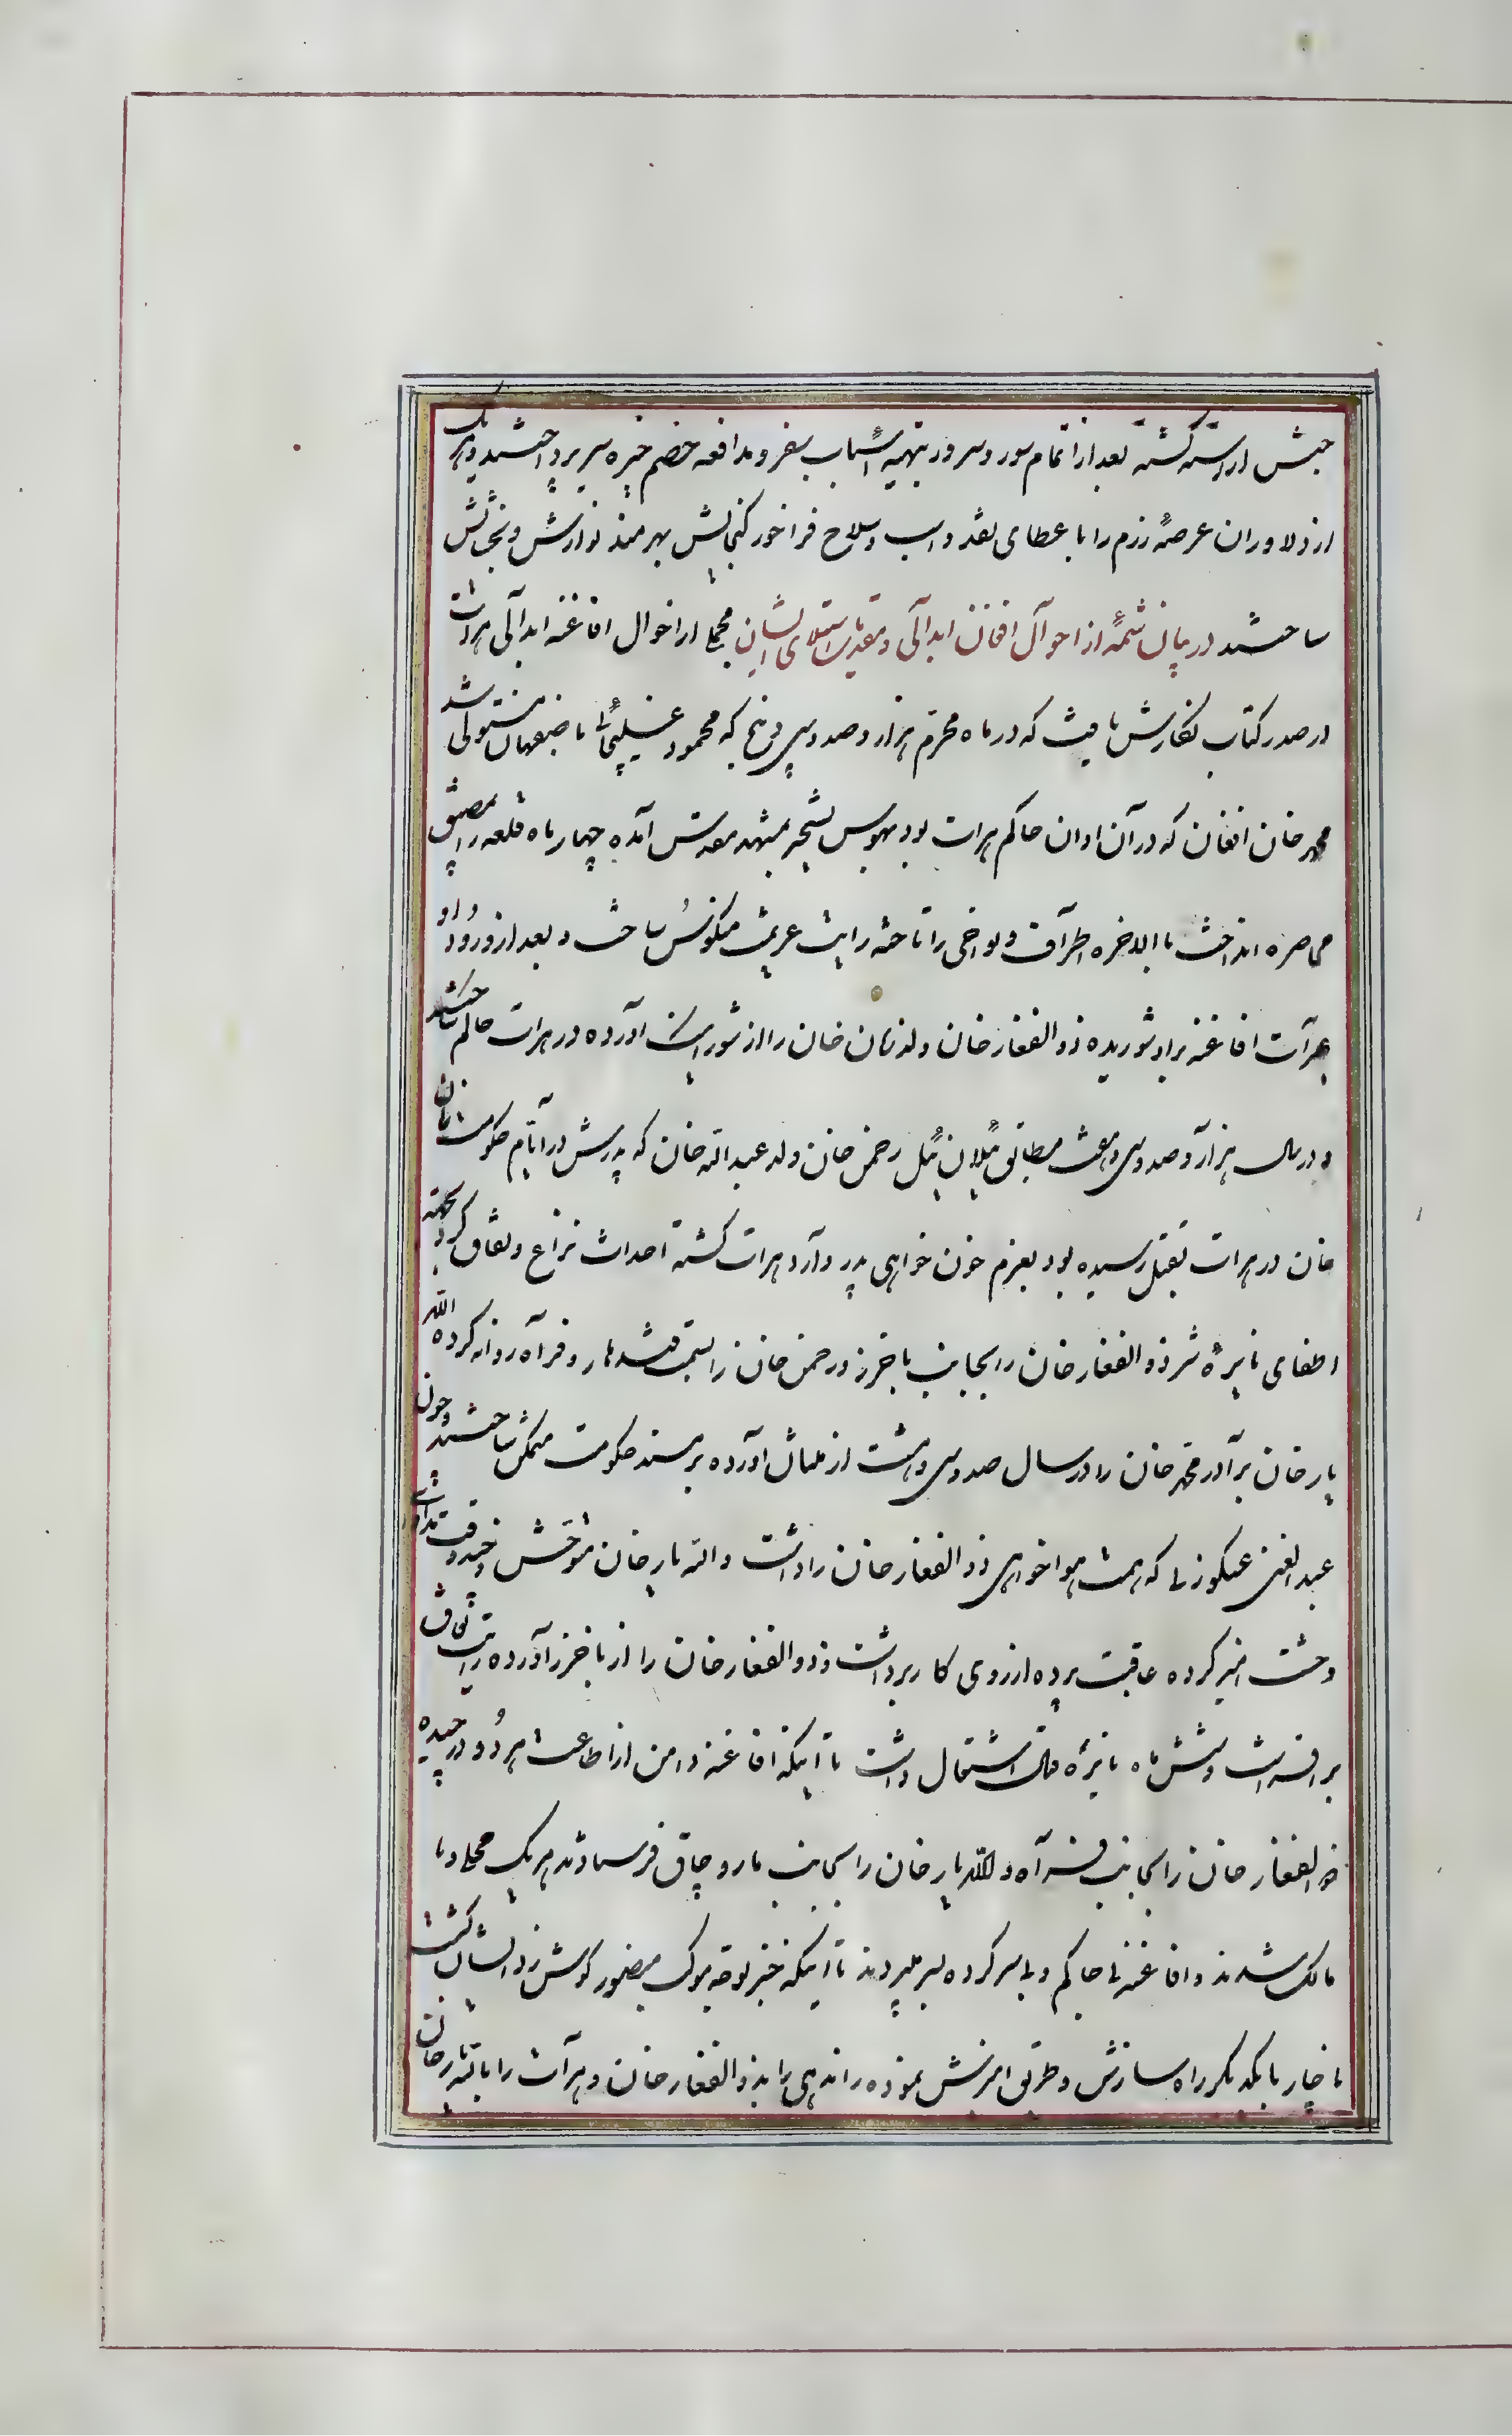 جشن آراسته گشته بعد از اتمام سور و سرور بتهیه اسباب سفر و مدافعه خصم خیره سر پرداختند و هر یک
از دلاوران عرصه رزم را با عطای نقد و اسب و سلاح فراخور گنجایش بهرمند نوازش و بخشایش
ساختند در بیان شمه از احوال افغان ابدالی و مقدمات استیلای ایشان مجملی از احوال افاغنه ابدالی هرات
در صدر کتاب نگارش یافت که در ماه محرم هزار و صد و سی و پنج که محمود غلیجائی باصفهان مستولی شد
محمد خان افغان که در آن اوان حاکم هرات بود بهوس تسخیر مشهد مقدس آمده چهار ماه قلعه را بمضیق
محاصره انداخت بالاخره اطراف و نواحی را تاخته رایت عزیمت منکوس ساخت و بعد از ورود او
بهرات افاغنه بر او شوریده ذوالفقار خان ولد زمان خان را از شورابک آورده در هرات حاکم ساختند
و در سال هزار و صد و سی و هفت مطابق ئیلان ئیل رحمن خان ولد عبدالله خان که پدرش در ایام حکومت زمان
خان در هرات بقتل رسیده بود بعزم خون خواهی پدر وارد هرات گشته احداث نزاع و نفاق کرد بجهته
اطفای نایره شر ذوالفقار خان را بجانب باخرز و رحمن خان را بسمت قندهار و فراه روانه کرده الله
یار خان برادر محمد خان را در سال صد و سی و هشت از ملتان آورده بر مسند حکومت متمکن ساختند و چون
عبدالغنی علیکوزئی که همت هواخواهی ذوالفقار خان را داشت و الله یار خان متوحش
وحشت انگیز کرده عاقبت پرده از روی کار برداشت و ذوالفقار خان را از باخرز آورده رایت نفاق
بر افراشت و شش ماه نایره قتال اشتعال داشت تا اینکه افاغنه دامن از اطاعت هر دو در چیده
ذوالفقار خان را بجانب فراه و الله یار خان را بجانب ماروچاق فرستادند هر یک محلی را
مالک شدند و افاغنه بی حاکم و بی سرکرده بسر میبردند تا اینکه خبر توجه موکب منصور گوش زد ایشان گشت
ناچار با یکدیگر راه سازش و طریق آمیزش نموده راندهی را بذوالفقار خان و هرات را بالله یار خان